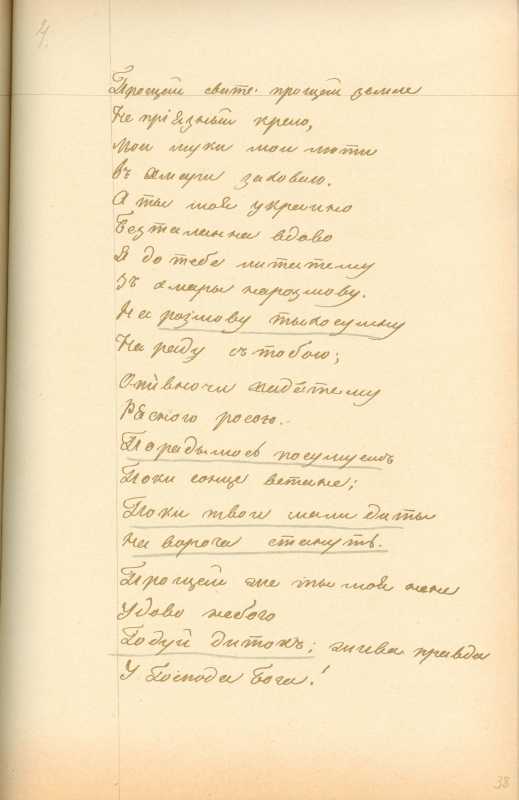 4.
Прощай свите. прощай земле
Не прiязный краю,
Мои муки мои люти
Въ хмари заховаю.
А ты моя украино
Безталанна вдово
Я до тебе литатему
Зъ хмары на розмову.
На розмову тыхосумну
На раду съ тобою;
Опiвночи падатему
Рясного росою.
Порадымось посумуемъ
Поки сонце встане;
Поки твои мали диты
на ворога стануть.
Прощай же ты моя нене
Удово небого
Годуй дитокъ; жива правда
У Господа Бога!
38